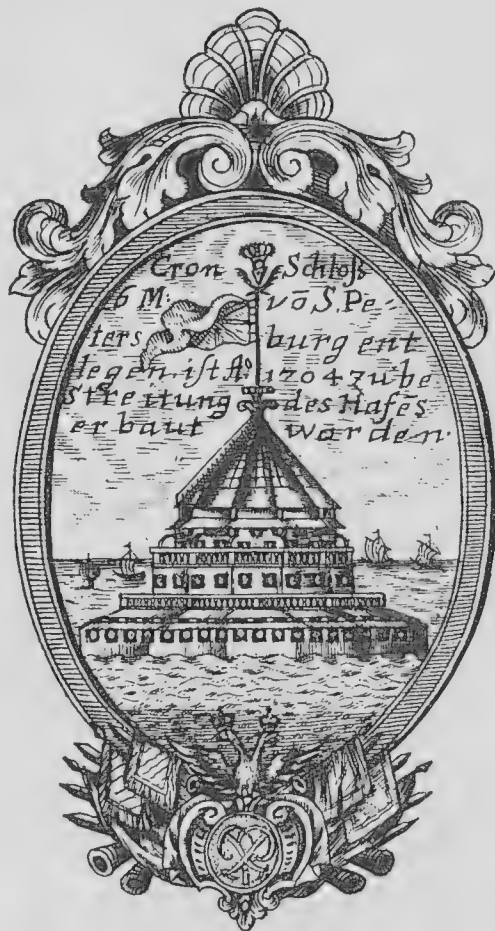 Cron Schloß
6 M. võ S. Pe-
ters burg ent
legen. ist Aº 1704 zu be
streittung des Hafẽs
erbaut worden.